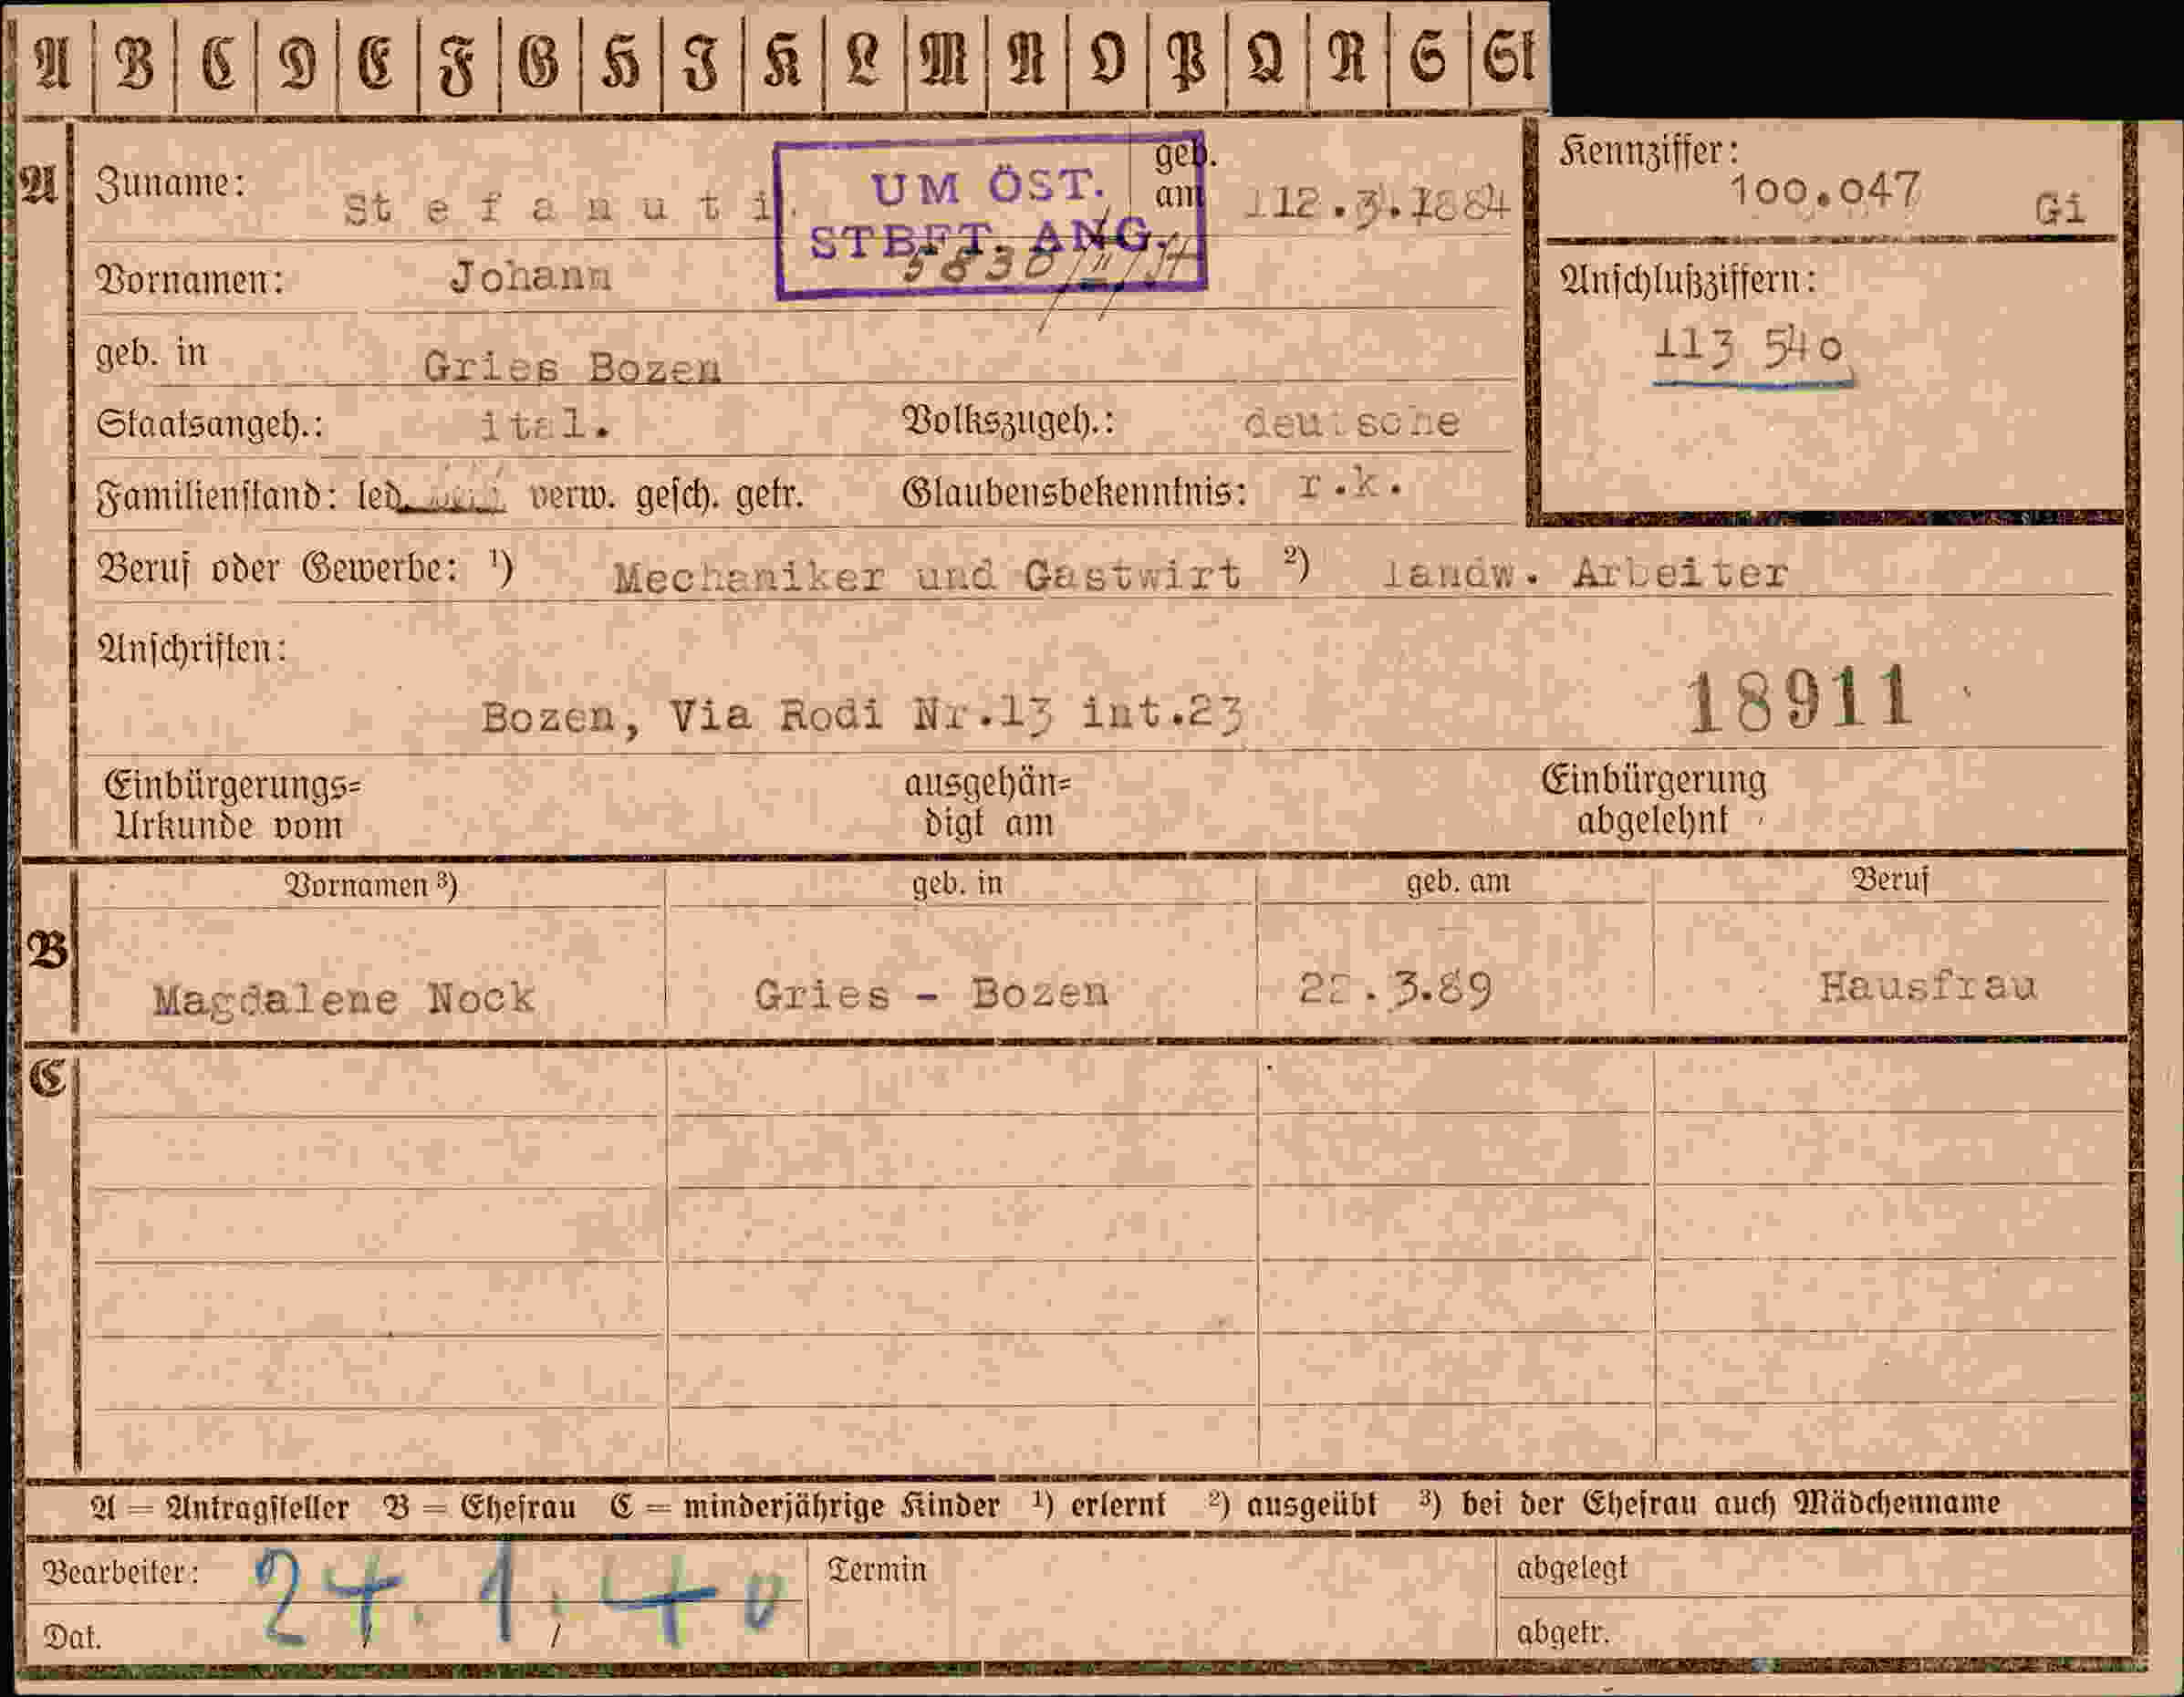 A B C D E F G H I K L M N O P Q R S St
A Zuname: Stefanuti geb. am 12.3.1884
UM ÖST.
STBFT. ANG.
Kennziffer:
100.047 Gi
Vornamen: Johann
Anschlußziffern:
113 540
geb. in Gries Bozen
Staatsangeh.: ital. Volkszugeh.: deutsche
Familienstand: led. verw. gesch. getr. Glaubensbekenntnis: r.k.
Beruf oder Gewerbe: 1) Mechaniker und Gastwirt 2) landw. Arbeiter
Anschriften:
Bozen, Via Rodi Nr.13 int.23 18911
Einbürgerungs= ausgehän= Einbürgerung
Urkunde vom digt am abgelehnt
Vornamen 3) geb. in geb. am Beruf
B Magdalene Nock Gries - Bozen 3.89 Hausfrau
C
A = Antragsteller B = Ehefrau C = minderjährige Kinder 1) erlernt 2) ausgeübt 3) bei der Ehefrau auch Mädchenname
Bearbeiter: 24. 1. 40 Termin abgelegt
Dat. abgetr.